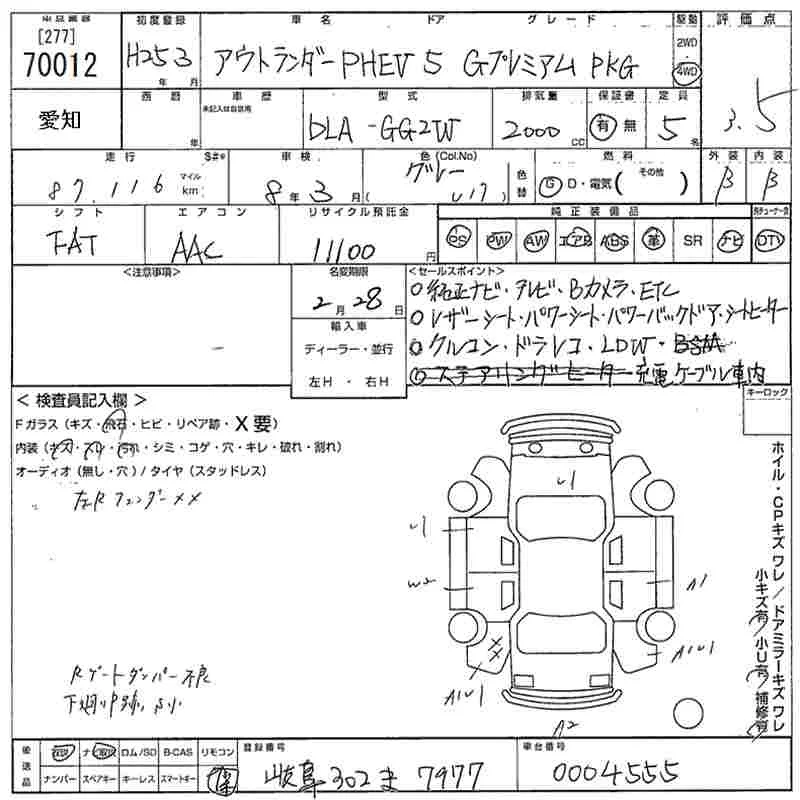 [277]
70012
初度登録
H25 3
年 月
車名 ドア グレード
アウトランダーPHEV 5 Gプレミアム PKG
駆動
2WD
4WD
評価点
3.5
愛知
車歴
年
型式
DLA-GG2W
排気量
2000 CC
保証書
有 無
定員
5 名
走行
87,116
マイル
km
車検
8年 3月
色(Col.No)
グレー
(U17)
色替
燃料
G D・電気( その他 )
外装
B
内装
B
シフト
FAT
エアコン
AAC
リサイクル預託金
11100 円
純正装備品
PS PW AW エアB ABS 革 SR ナビ DTV
<注意事項>
名変期限
2月28日
輸入車
ディーラー・並行
左H ・ 右H
<セールスポイント>
○純正ナビ・テレビ・Bカメラ・ETC
○レザーシート・パワーシート・パワーバックドア・シートヒーター
○クルコン・ドラレコ・LDW・BSM
○ステアリングヒーター 充電ケーブル車内
キーロック
< 検査員記入欄 >
Fガラス(キズ・飛石・ヒビ・リペア跡・X要)
内装(キズ・スレ・汚れ・シミ・コゲ・穴・キレ・破れ・割れ)
オーディオ(無し・穴)/タイヤ(スタッドレス)
左Rフェンダー××
U1
U1
W2
A1
A1U1
A1U1
A2
Rゲートダンパー不良
ホイル・CPキズ ワレ/ドアミラーキズ ワレ
小キズ有/小U有/補修有
後送品
取説 ナビ取説 ロム/SD B-CAS リモコン
ナンバー スペアキー キーレス スマートキー
登録番号
岐阜 302 ま 7977
車台番号
0004555